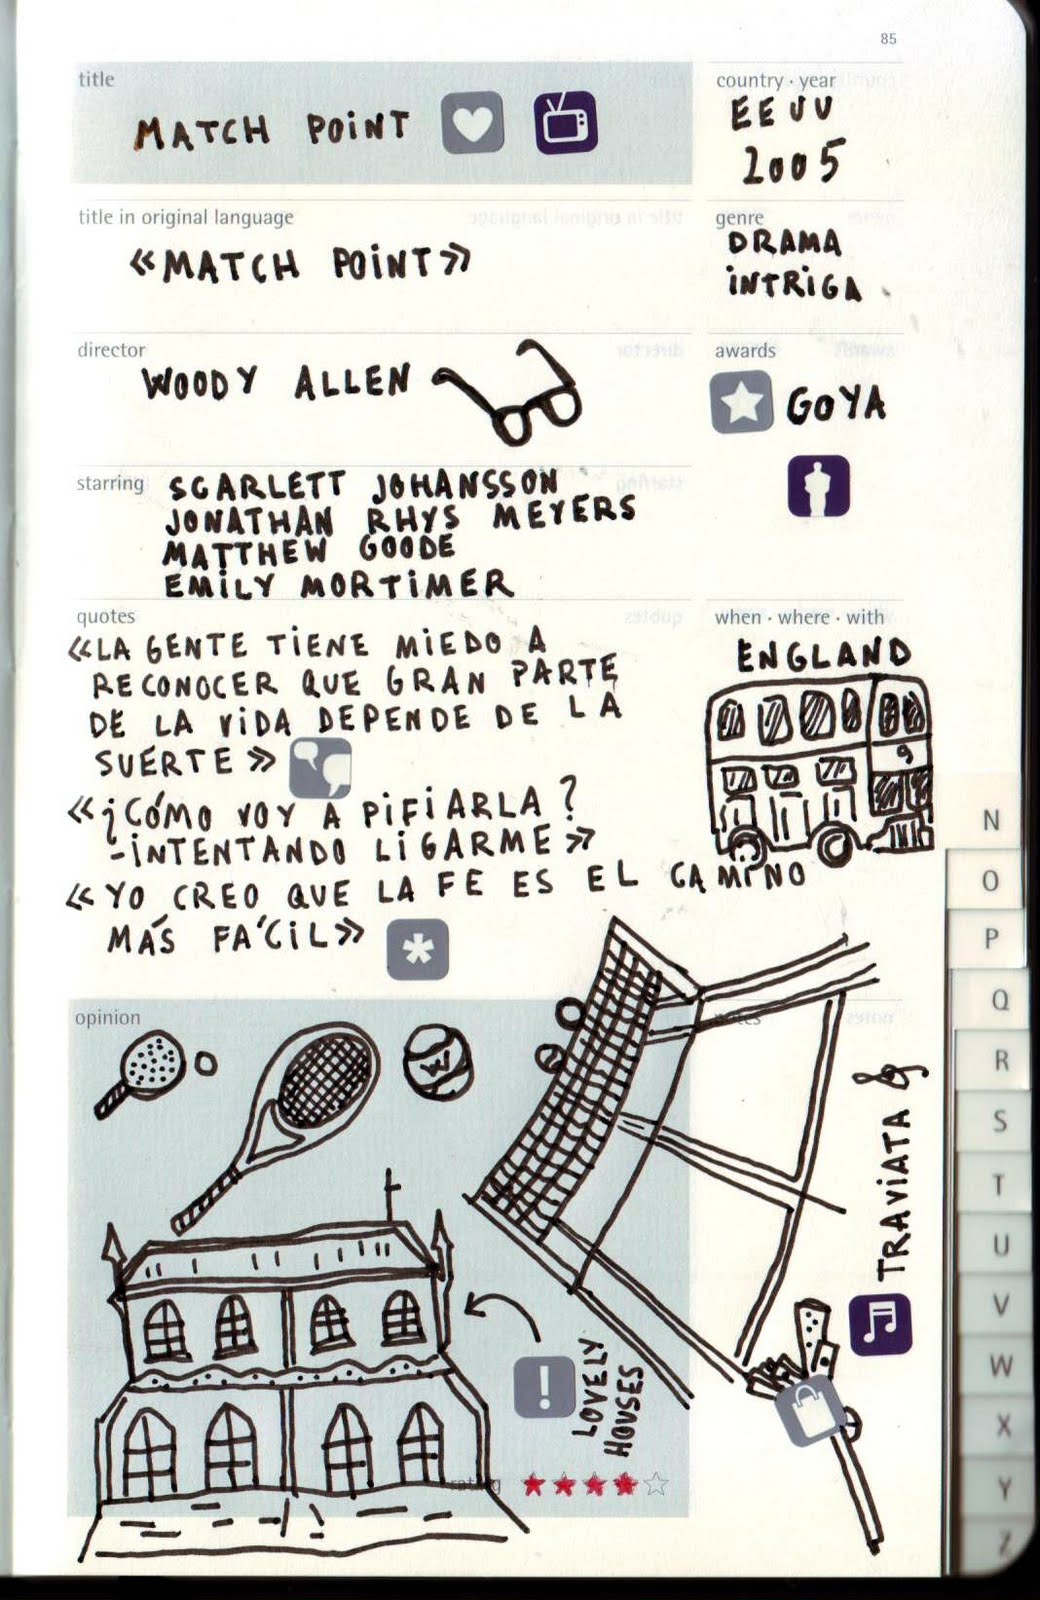 85
title
MATCH POINT
country · year
EEUU
2005
title in original language
«MATCH POINT»
genre
DRAMA
INTRIGA
director
WOODY ALLEN
awards
GOYA
starring
SCARLETT JOHANSSON
JONATHAN RHYS MEYERS
MATTHEW GOODE
EMILY MORTIMER
quotes
«LA GENTE TIENE MIEDO A
RECONOCER QUE GRAN PARTE
DE LA VIDA DEPENDE DE LA
SUERTE»
«¿CÓMO VOY A PIFIARLA?
-INTENTANDO LIGARME»
«YO CREO QUE LA FE ES EL CAMINO
MÁS FÁCIL»
when · where · with
ENGLAND
9
opinion
W
notes
TRAVIATA
LOVELY
HOUSES
rating
N
O
P
Q
R
S
T
U
V
W
X
Y
Z